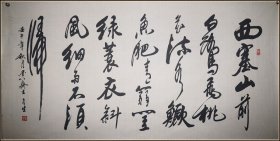 西塞山前
白鷺飛桃
花流水鱖
魚肥青箬笠
綠蓑衣斜
風細雨不須
歸